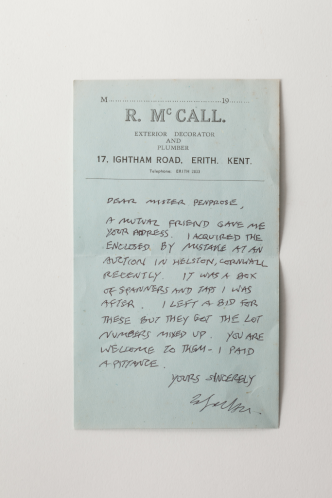 M.......................................... 19........
R. McCALL.
EXTERIOR DECORATOR
AND
PLUMBER
17, IGHTHAM ROAD, ERITH. KENT.
Telephone: ERITH
DEAR MISTER PENROSE,
A MUTUAL FRIEND GAVE ME
YOUR ADDRESS. I ACQUIRED THE
ENCLOSED BY MISTAKE AT AN
AUCTION IN HELSTON, CORNWALL
RECENTLY. IT WAS A BOX
OF SPANNERS AND TAPS I WAS
AFTER. I LEFT A BID FOR
THESE BUT THEY GOT THE LOT
NUMBERS MIXED UP. YOU ARE
WELCOME TO THEM - I PAID
A PITTANCE.
YOURS SINCERELY